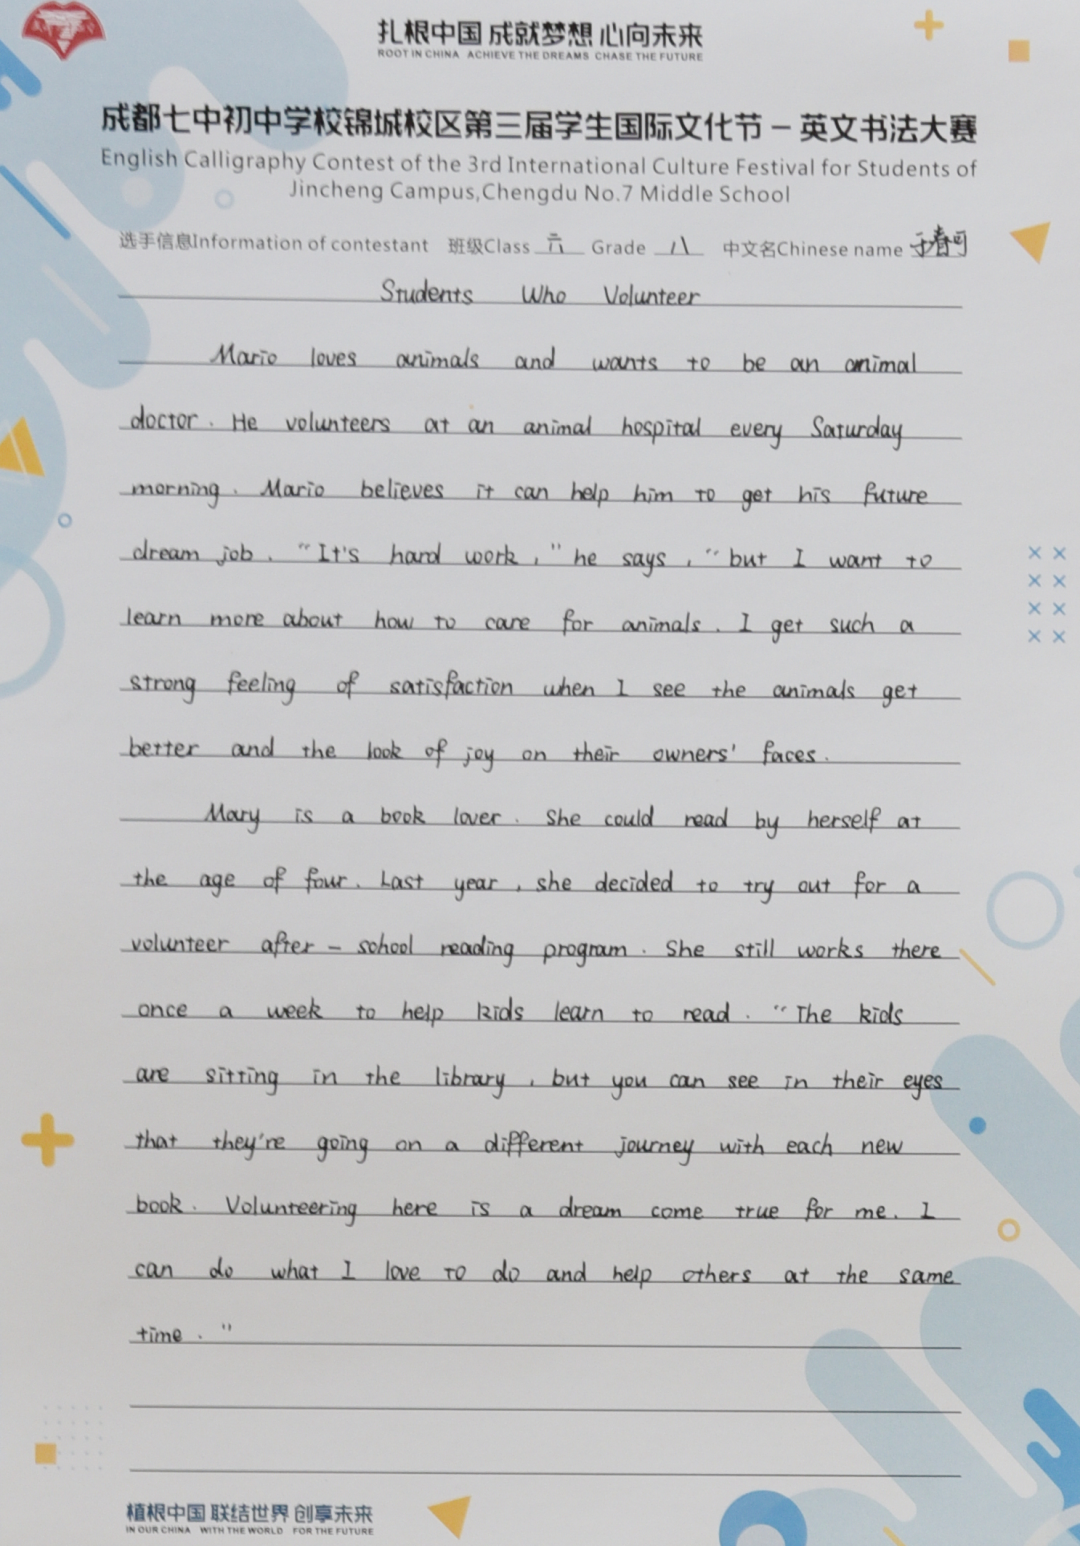 扎根中国 成就梦想 心向未来
ROOT IN CHINA ACHIEVE THE DREAMS CHASE THE FUTURE
成都七中初中学校锦城校区第三届学生国际文化节－英文书法大赛
English Calligraphy Contest of the 3rd International Culture Festival for Students of
Jincheng Campus,Chengdu No.7 Middle School
选手信息Information of contestant 班级Class 六 Grade 八 中文名Chinese name 于春可
Students Who Volunteer
Mario loves animals and wants to be an animal
doctor. He volunteers at an animal hospital every Saturday
morning. Mario believes it can help him to get his future
dream job. "It's hard work," he says, "but I want to
learn more about how to care for animals. I get such a
strong feeling of satisfaction when I see the animals get
better and the look of joy on their owners' faces.
Mary is a book lover. She could read by herself at
the age of four. Last year, she decided to try out for a
volunteer after-school reading program. She still works there
once a week to help kids learn to read. "The kids
are sitting in the library, but you can see in their eyes
that they're going on a different journey with each new
book. Volunteering here is a dream come true for me. I
can do what I love to do and help others at the same
time."
植根中国 联结世界 创享未来
IN OUR CHINA WITH THE WORLD FOR THE FUTURE